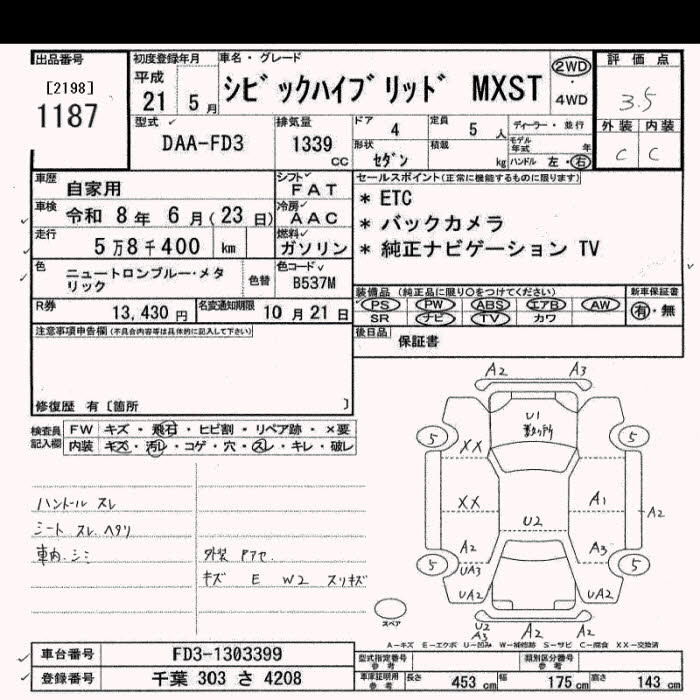 出品番号
[2198]
1187
初度登録年月
平成
21 5 月
車名・グレード
シビックハイブリッド MXST
2WD
・
4WD
評価点
3.5
外装 内装
C C
型式
DAA-FD3
排気量
1339 CC
ドア 4
定員 5 人
ディーラー・並行
モデル年式 年
形状 セダン
積載 kg
ハンドル 左・右
車歴 自家用
シフト FAT
車検 令和 8 年 6 月 ( 23 日)
冷房 AAC
走行 5 万 8 千 400 km
燃料 ガソリン
セールスポイント(正常に機能するものに限ります)
* ETC
* バックカメラ
* 純正ナビゲーション TV
色 ニュートロンブルー・メタリック
色替
色コード B537M
R券 13,430 円
名変通知期限 10 月 21 日
装備品 (純正品に限り○をつけてください)
PS PW ABS エアB AW
SR ナビ TV カワ
新車保証書
有・無
注意事項申告欄(不具合内容等は具体的に記入して下さい)
後日品 保証書
修復歴 有〔箇所 〕
検査員記入欄
FW キズ・飛石・ヒビ割・リペア跡・×要
内装 キズ・汚レ・コゲ・穴・スレ・キレ・破レ
ハンドル スレ
シート スレ ヘタリ
車内 シミ
外装
キズ E W2 スリキズ
A2 A3
U1
5 5
XX
XX A1 A2
U2
A2 A3
UA3
5 5
UA2 UA2
U2
A3 A2 A2
スペア
A-キズ E-エクボ U-凹み W-補修跡 S-サビ C-腐食 XX-交換済
車台番号 FD3-1303399
登録番号 千葉 303 さ 4208
型式指定番号 参考
類別区分番号 参考
車庫証明用 参考
長さ 453 cm
幅 175 cm
高さ 143 cm